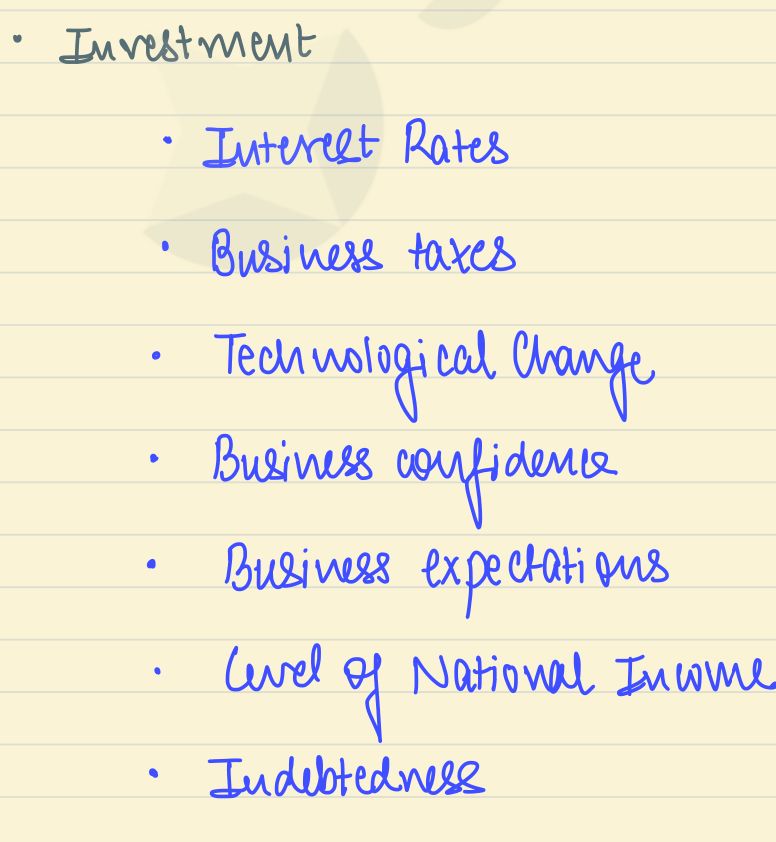 • Investment
• Interest Rates
• Business taxes
• Technological Change
• Business confidence
• Business expectations
• Level of National Income
• Indebtedness